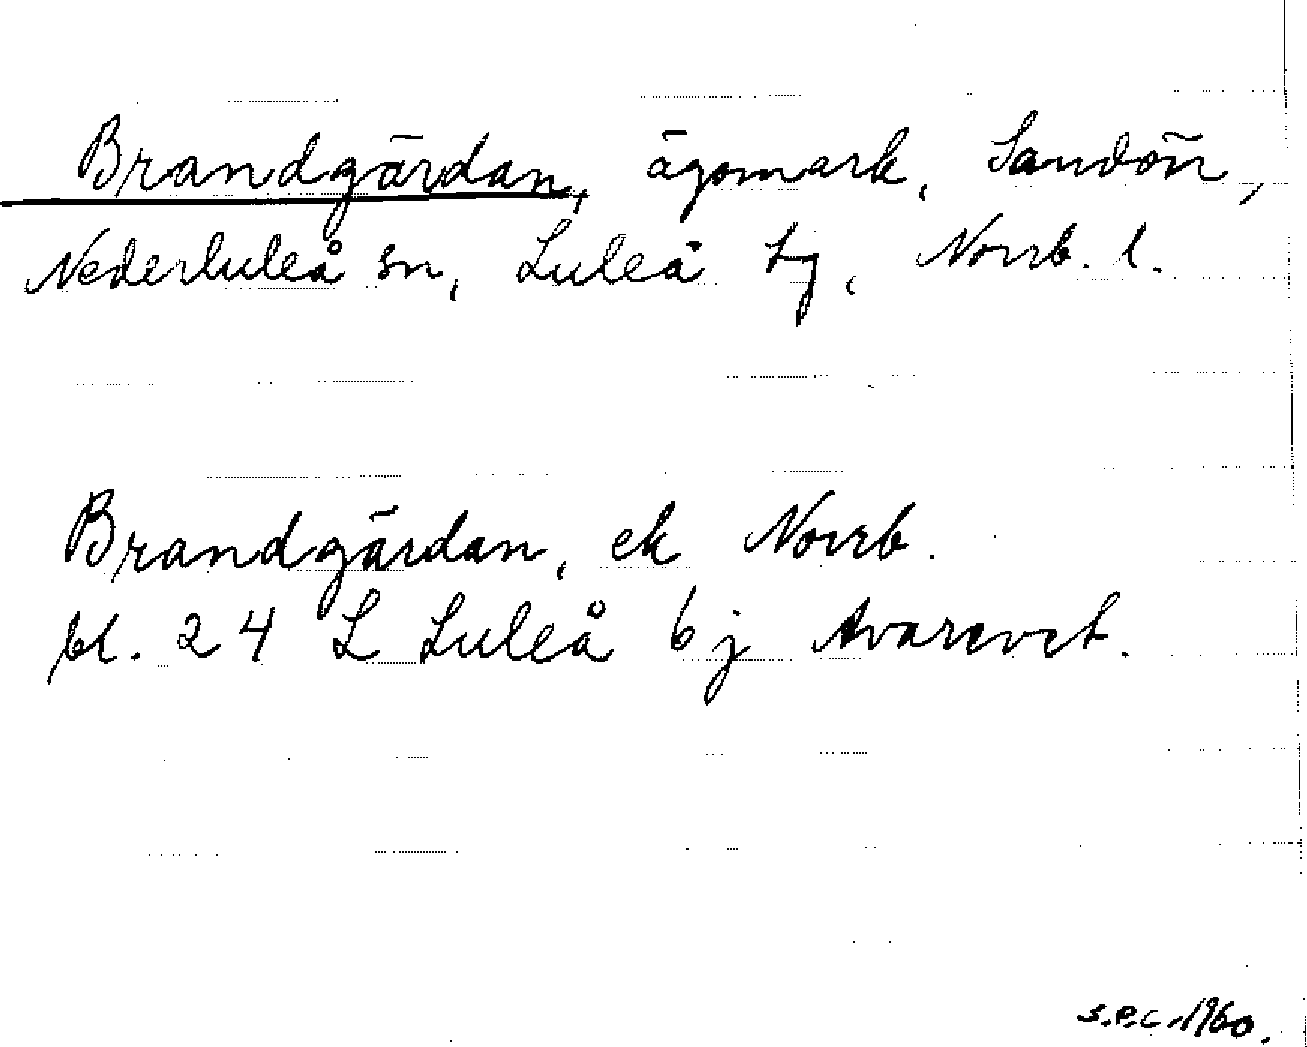 Brandgärdan, ägomark, Sandön,
Nederluleå sn, Luleå tg, Norrb. l.
Brandgärdan, ek Norrb.
bl. 24 L Luleå 6 j Avarevet.
s.e.c. 1960.